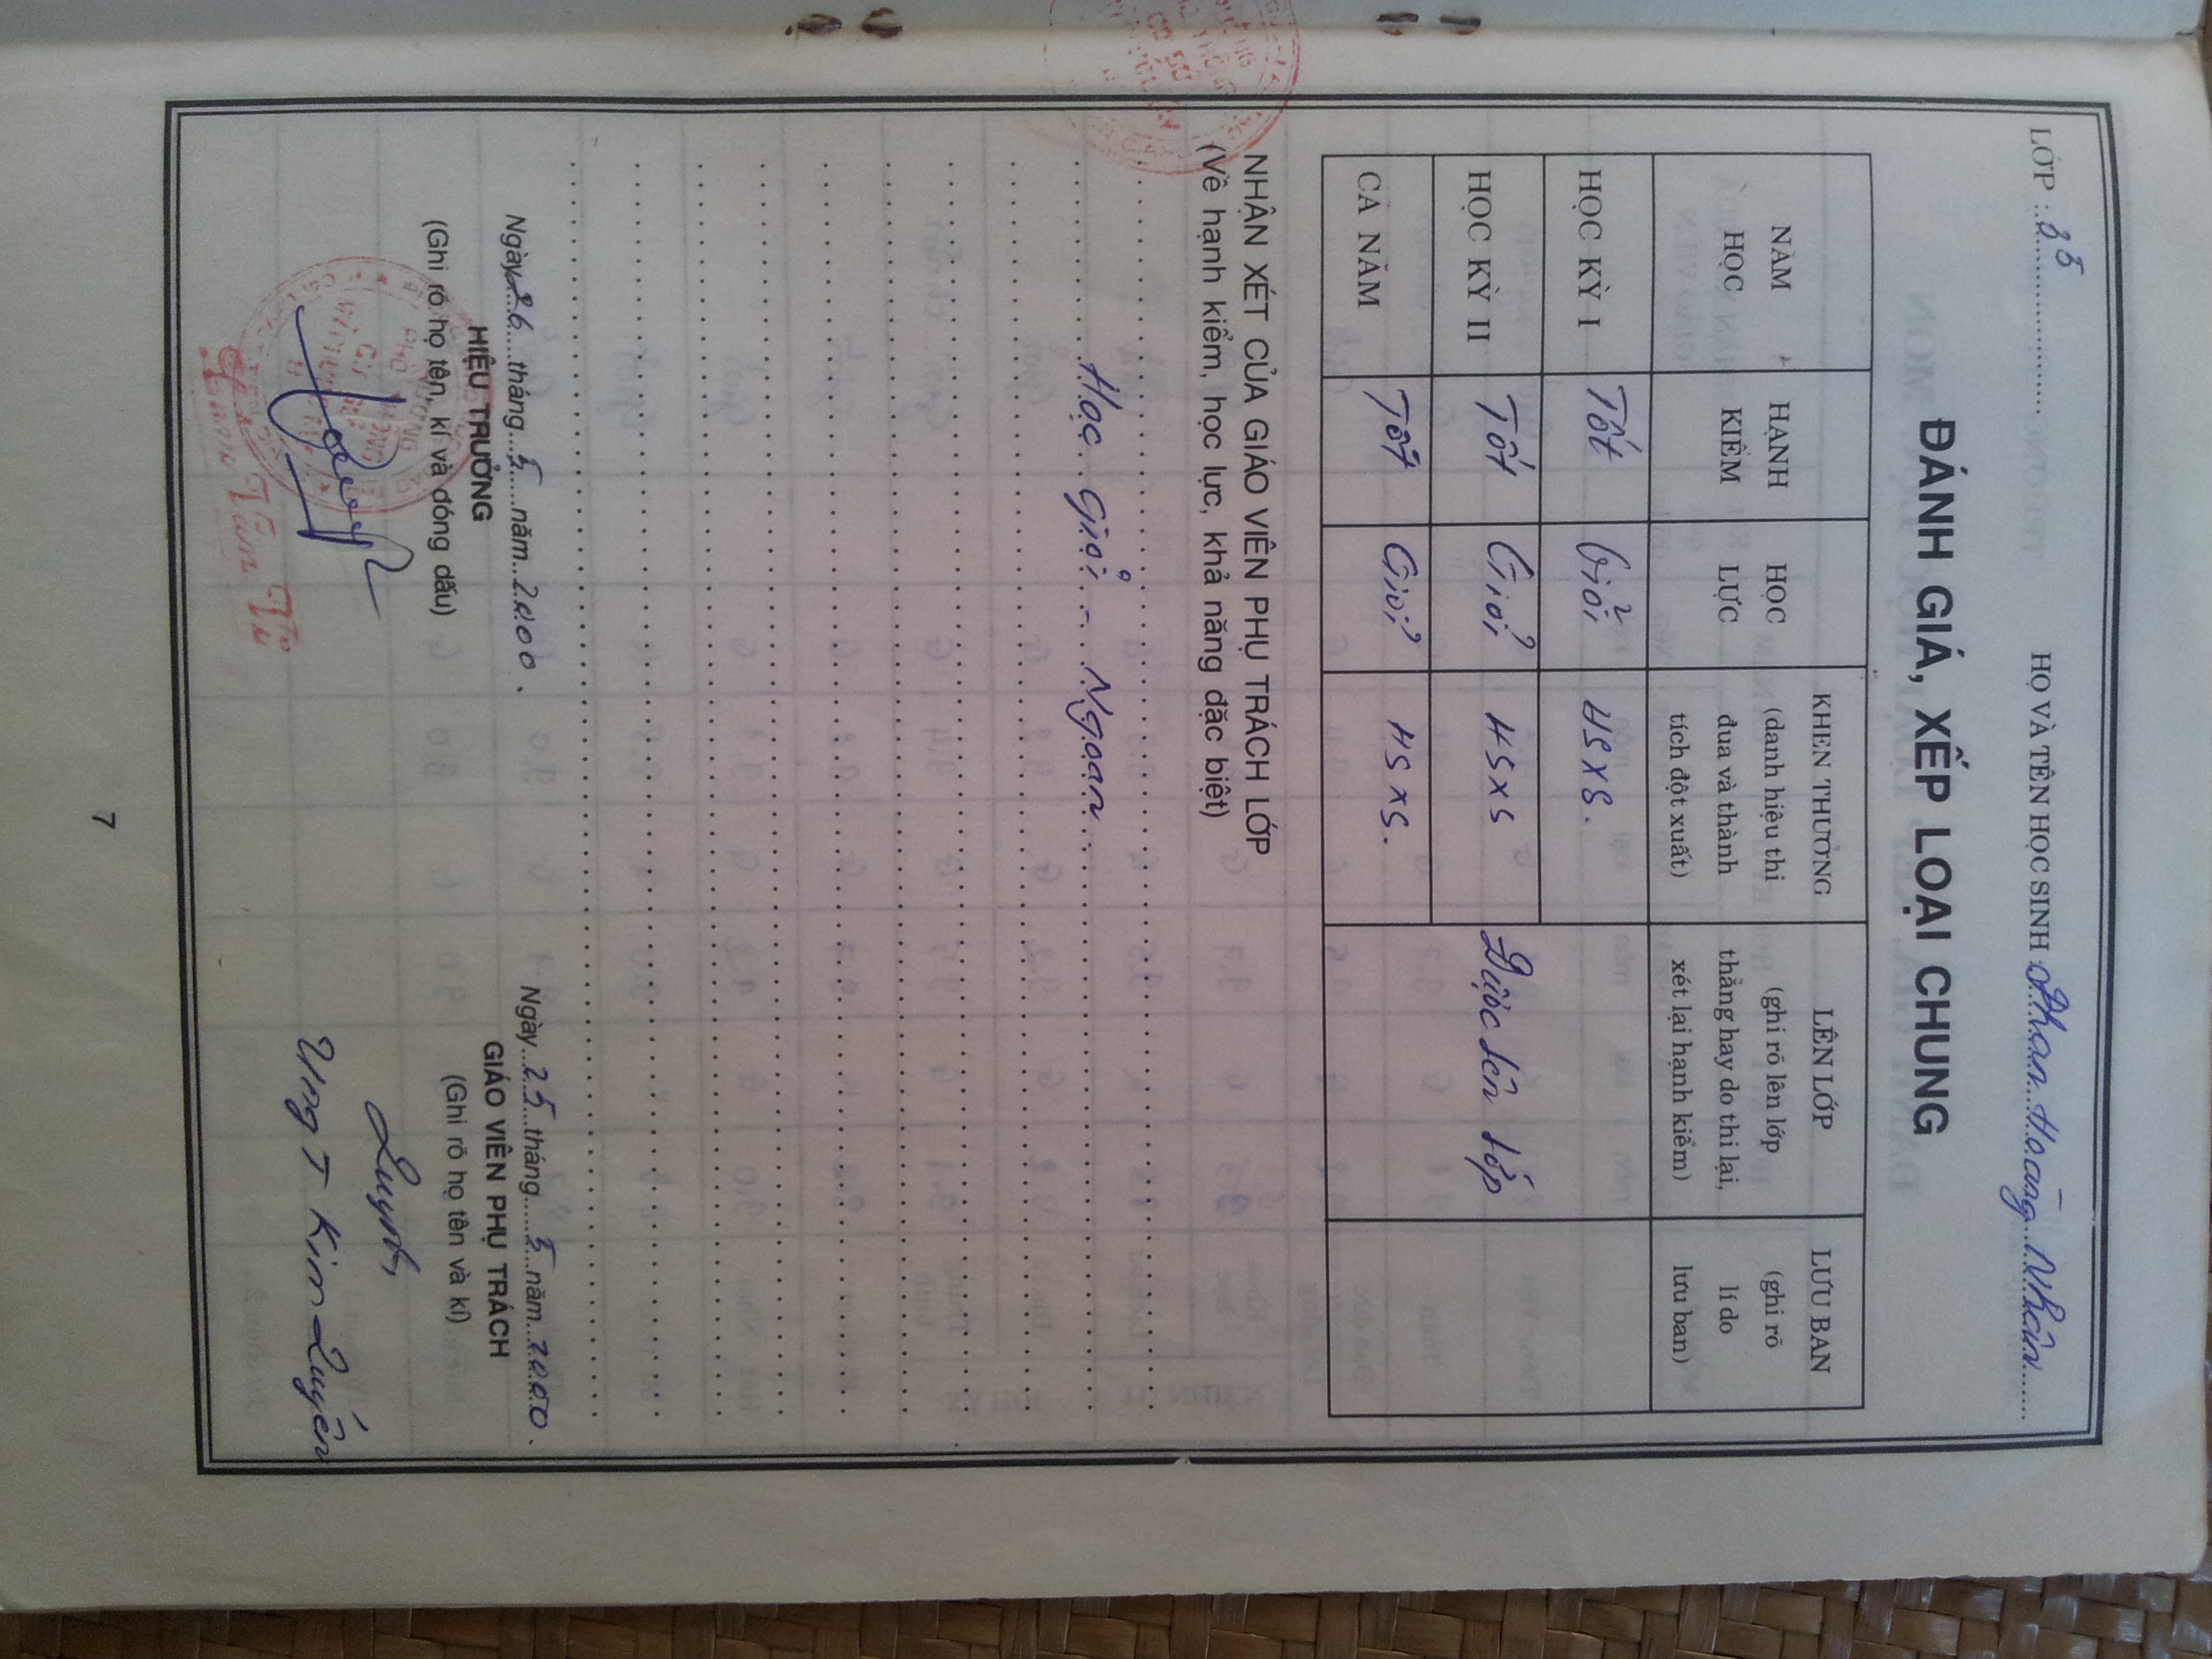 LỚP : 3 5 HỌ VÀ TÊN HỌC SINH Phan Hoàng Nhân
ĐÁNH GIÁ, XẾP LOẠI CHUNG
NĂM HỌC
HẠNH KIỂM
HỌC LỰC
KHEN THƯỞNG
(danh hiệu thi
đua và thành
tích đột xuất)
LÊN LỚP
(ghi rõ lên lớp
thẳng hay do thi lại,
xét lại hạnh kiểm)
LƯU BAN
(ghi rõ
lí do
lưu ban)
HỌC KỲ I Tốt Giỏi HSXS.
HỌC KỲ II Tốt Giỏi HSXS Được lên lớp
CẢ NĂM Tốt Giỏi HSXS.
NHẬN XÉT CỦA GIÁO VIÊN PHỤ TRÁCH LỚP
(Về hạnh kiểm, học lực, khả năng đặc biệt)
Học giỏi - Ngoan
Ngày 26 tháng 5 năm 2000.
HIỆU TRƯỞNG
(Ghi rõ họ tên, kí và đóng dấu)
Ngày 25 tháng 5 năm 2000.
GIÁO VIÊN PHỤ TRÁCH
(Ghi rõ họ tên và kí)
Ung T Kim Quyên
7